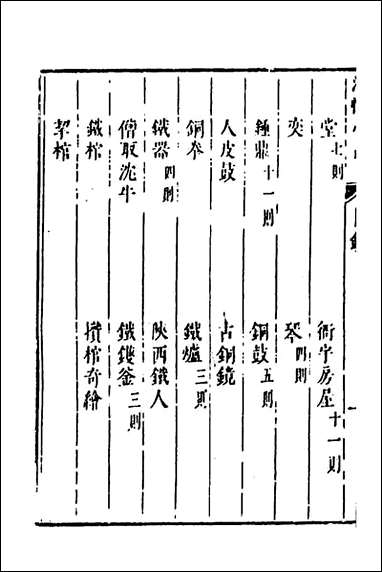 堂七則 衙宇房屋十一則
奕 琴四則
鐘鼎十一則 銅鼓五則
人皮鼓 古銅鏡
銅拳 鐵爐三則
鐵器四則 陝西鐵人
僧取沈牛 鐵鑊釜三則
鐵棺 攢棺奇繪
挈棺